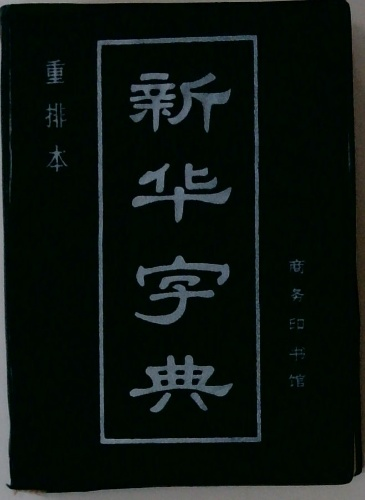 重排本
新华字典
商务印书馆